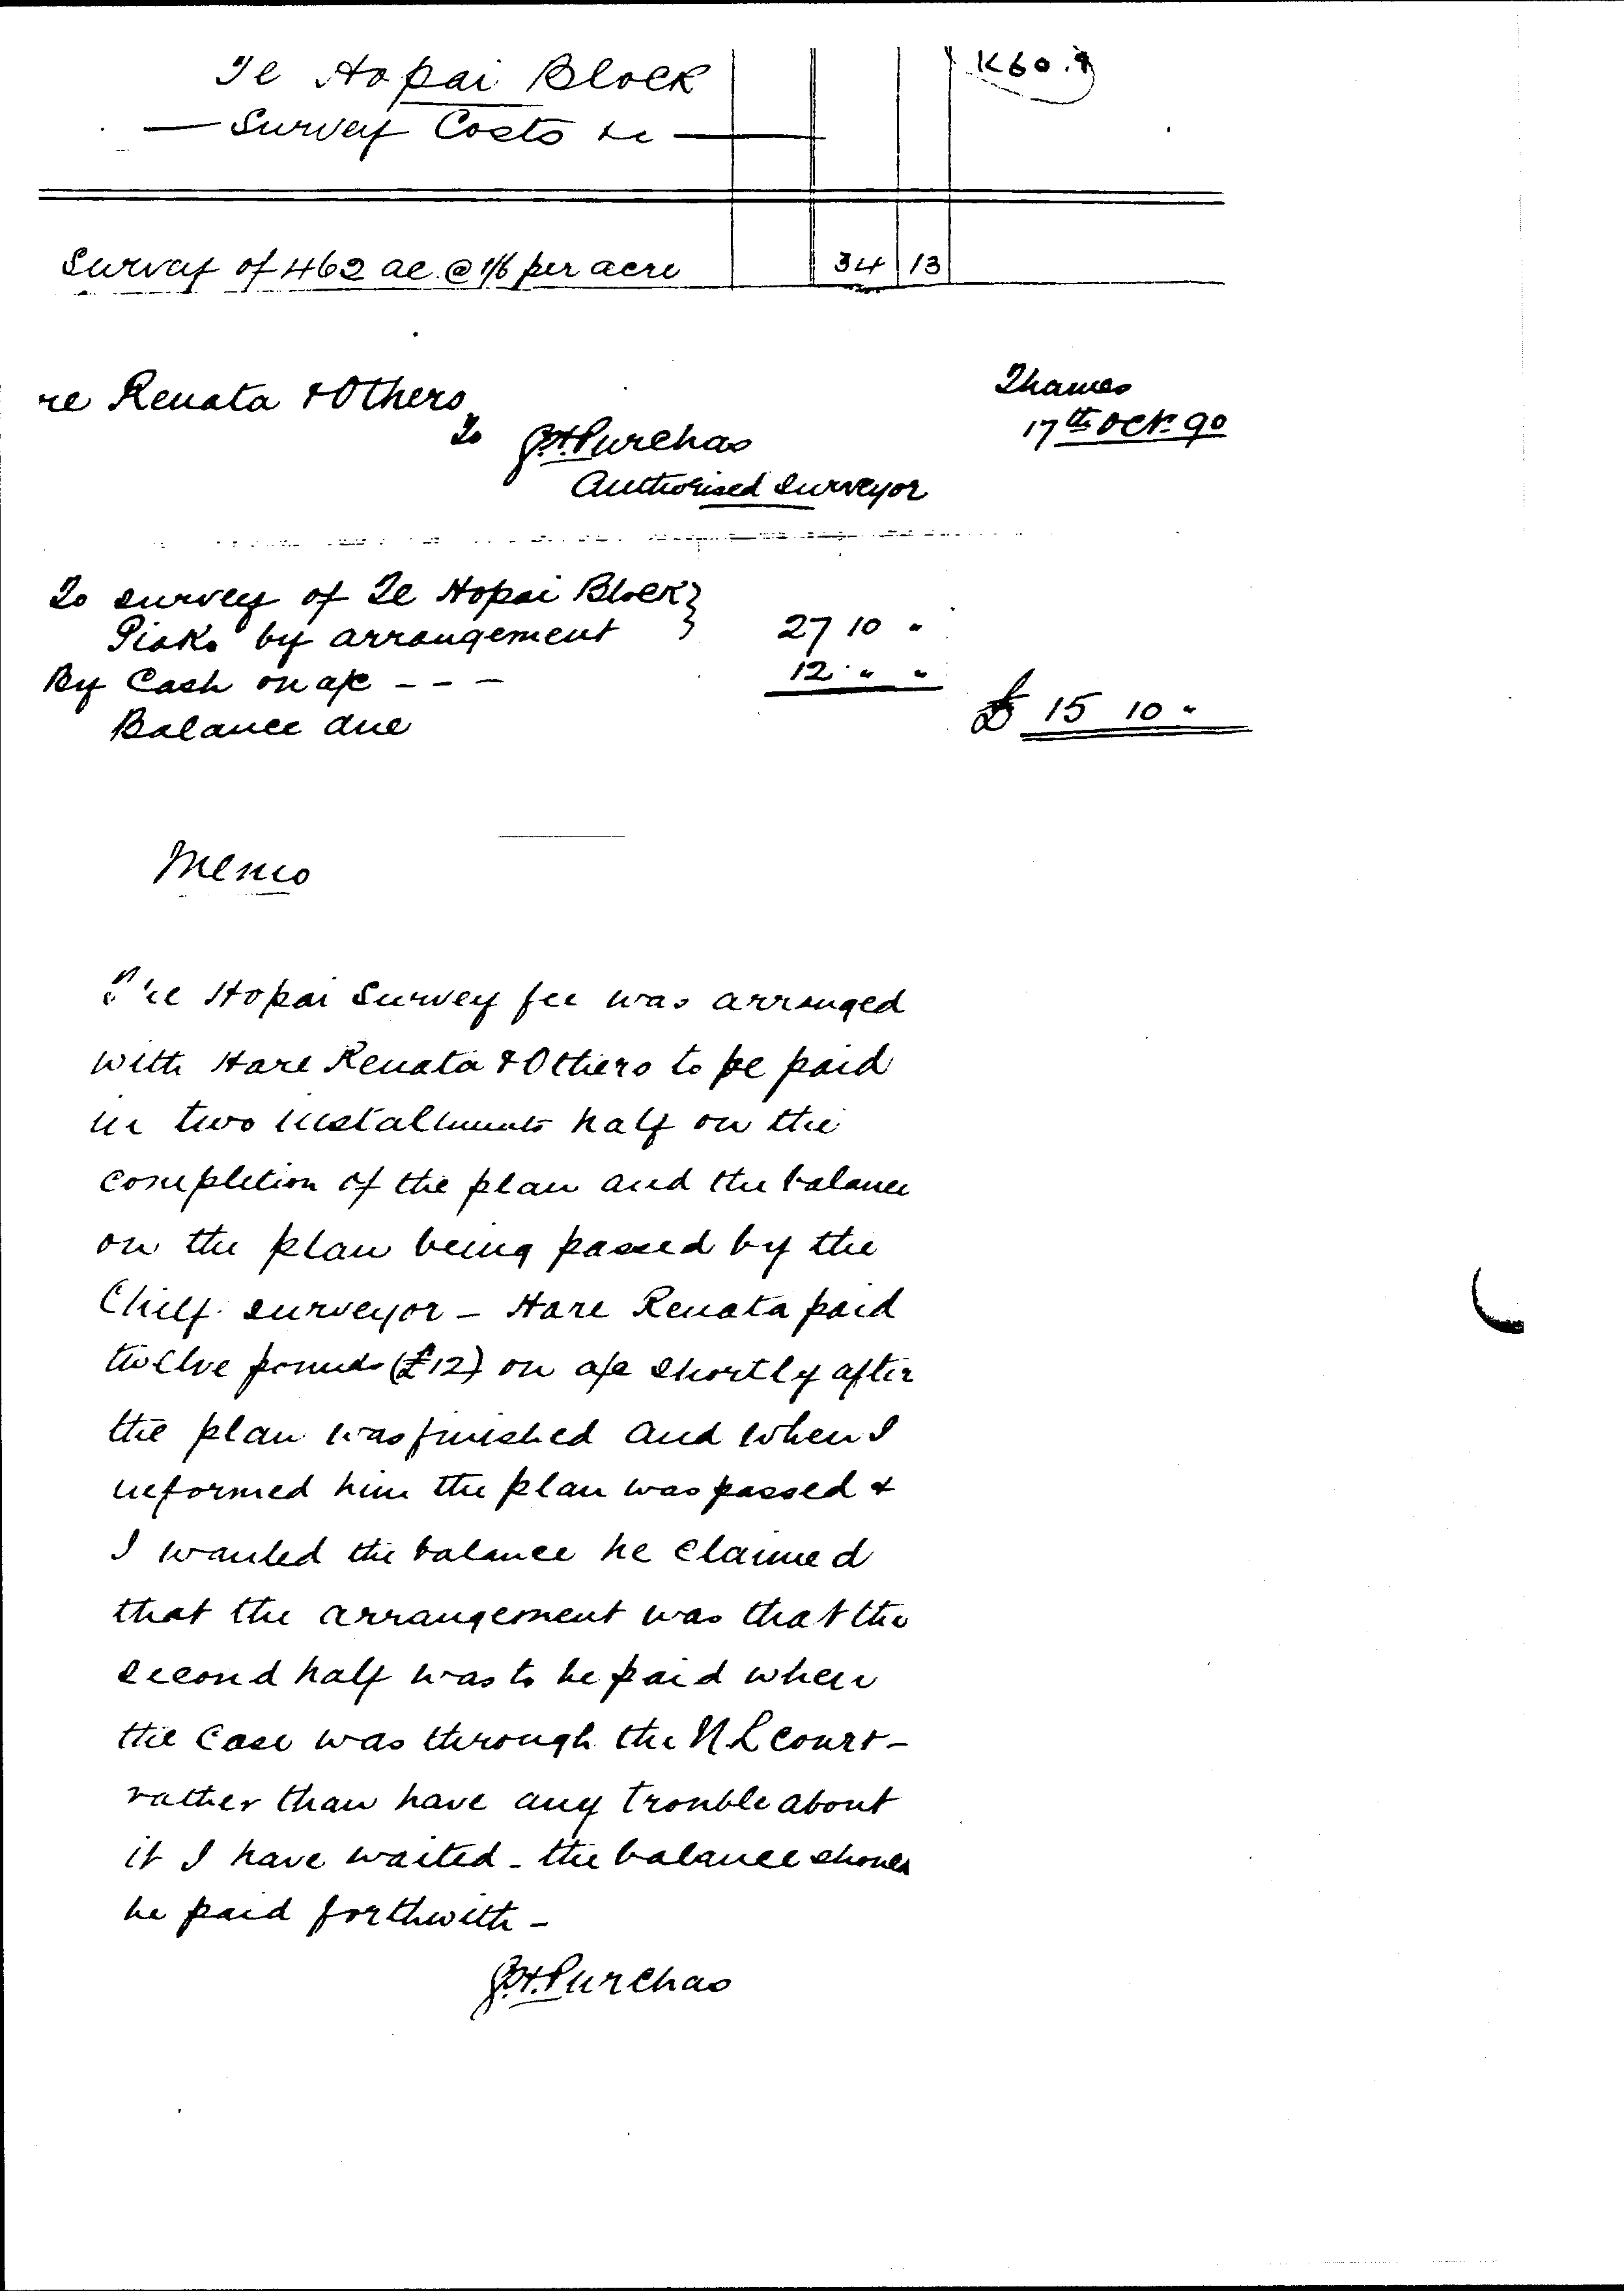 Te Hopai Block K60.9
— Survey Costs &c —
Survey of 462 ac. @ 1/6 per acre 34 13
re Renata & Others Thames
To Purchas 17th Oct. 90
Authorised Surveyor
To survey of Te Hopai Block }
Piako by arrangement } 27 10 "
By Cash on a/c - - - 12 " "
Balance due £ 15 10 "
Memo
Hopai Survey fee was arranged
with Hare Renata & Others to be paid
in two instalments half on the
completion of the plan and the balance
on the plan being passed by the
Chief surveyor – Hare Renata paid
twelve pounds (£12) on a/c shortly after
the plan was finished and when I
informed him the plan was passed &
I wanted the balance he claimed
that the arrangement was that the
second half was to be paid when
the case was through the N L Court –
rather than have any trouble about
it I have waited – the balance should
be paid forthwith –
Purchas